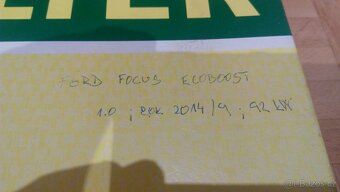 LTER
FORD FOCUS ECOBOOST
1.0 ; ROK 2014/9 ; 92 kW
eBazos.cz